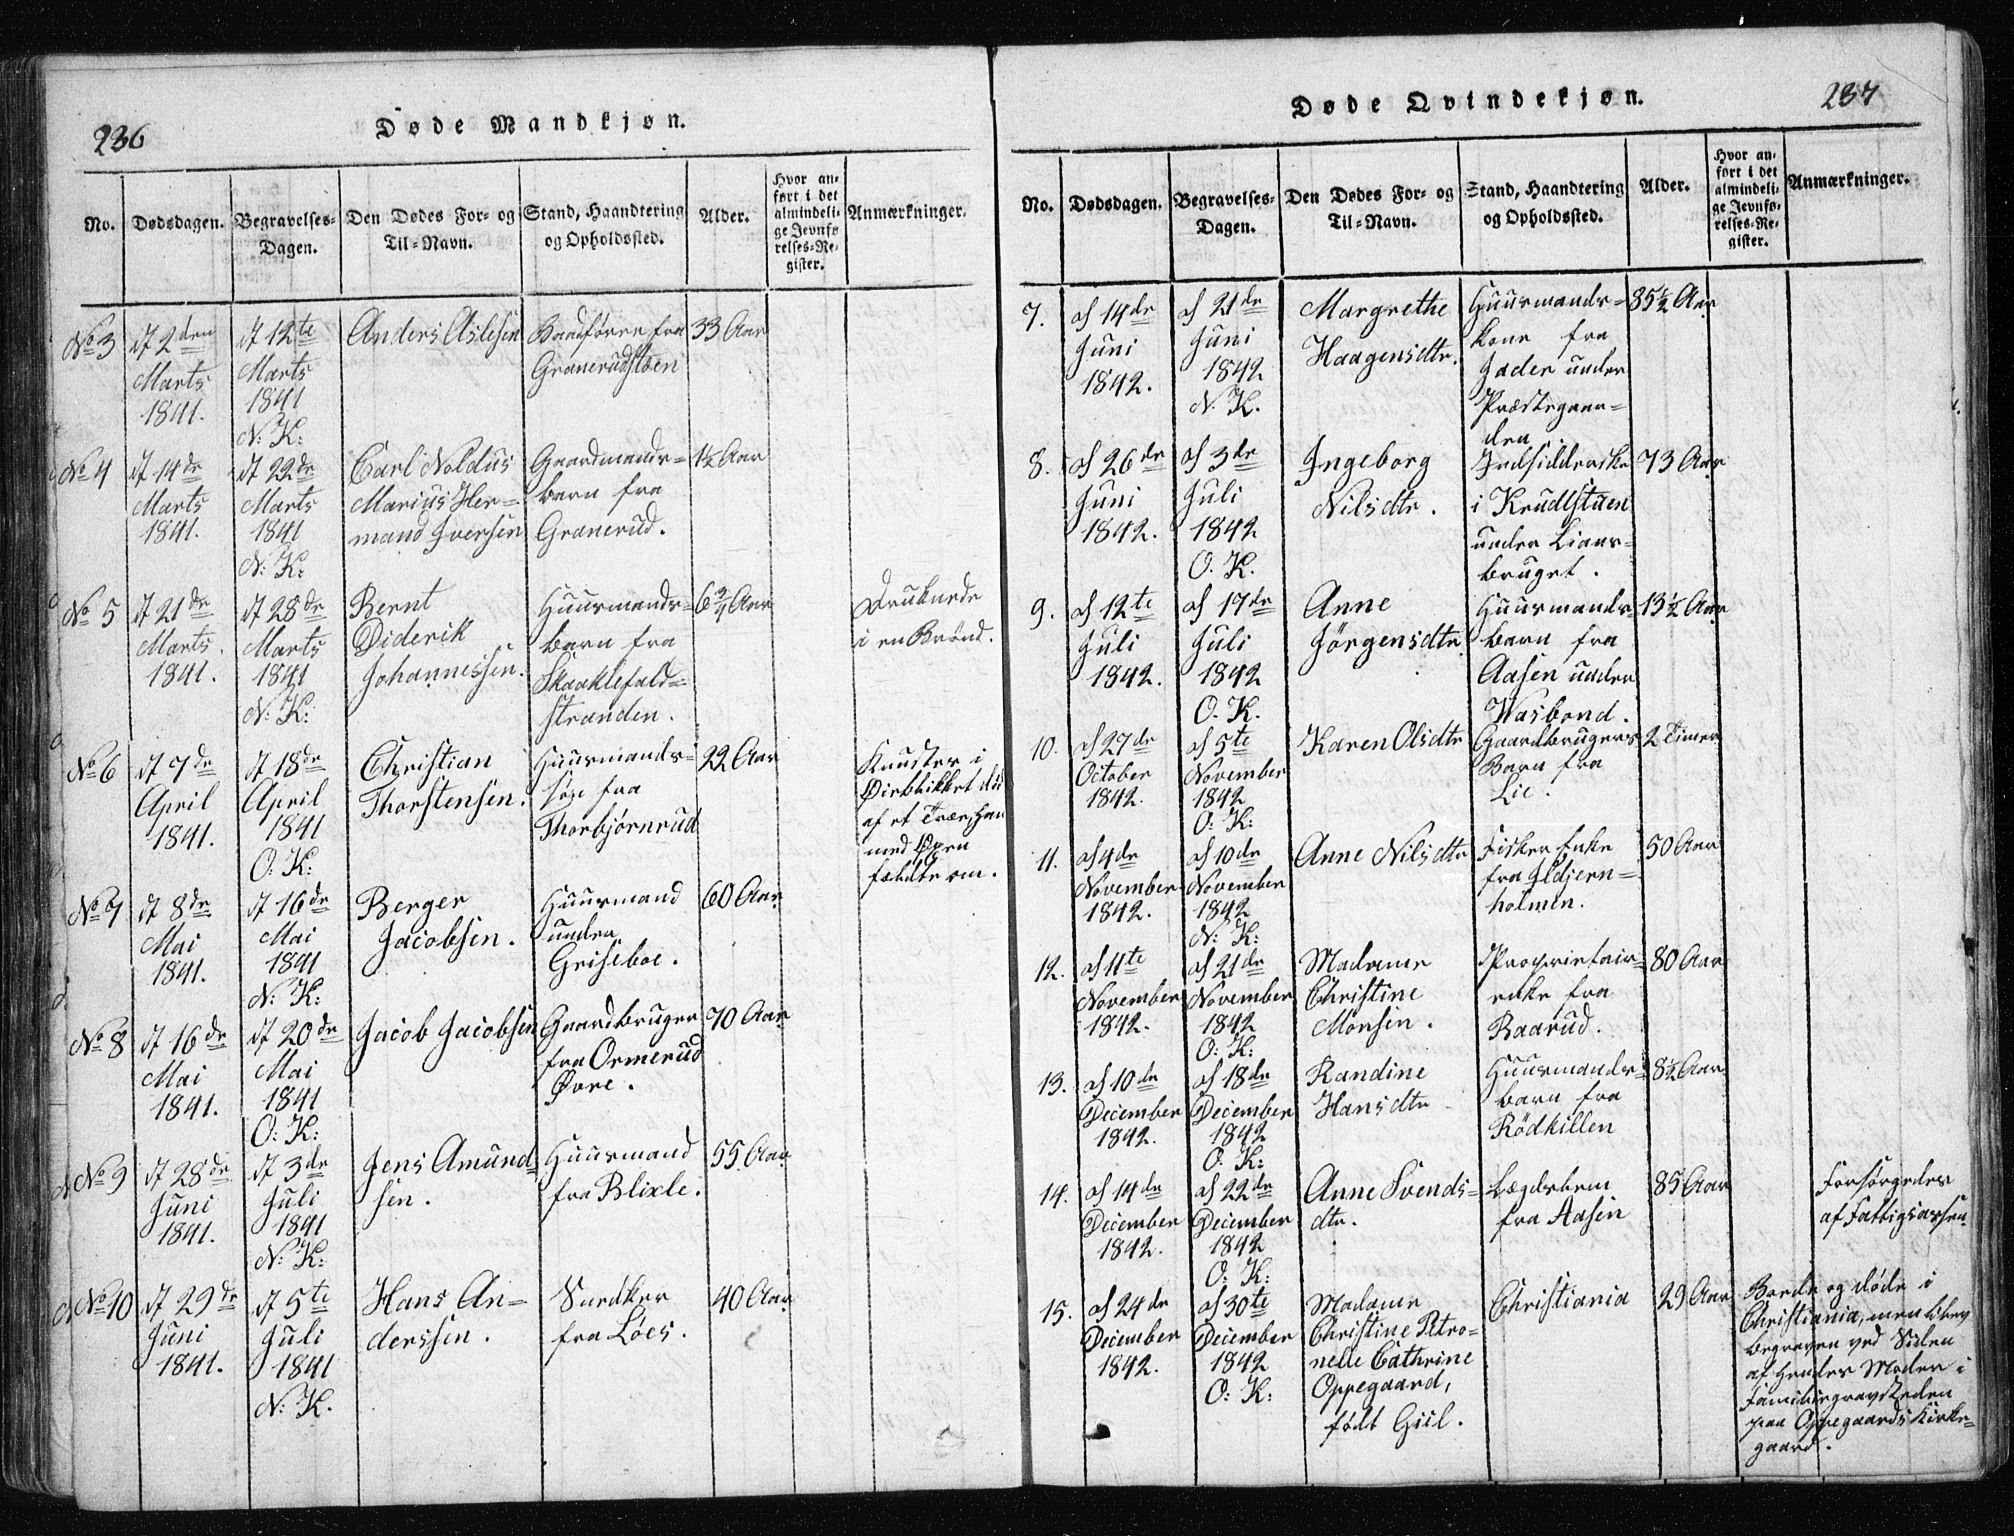 236
Døde Mandkjøn.
No.
Dødsdagen.
Begravelses-
Dagen.
Den Dødes For- og
Til-Navn.
Stand, Haandtering
og Opholdssted.
Alder.
Hvor an-
ført i det
almindeli-
ge Jevnfø-
relses-Re-
gister.
Anmærkninger.
No 3
d 2den
Marts
1841.
d 12te
Marts
1841
N: K:
Anders Aslesen
Baadfører fra
Granerudstøen
33 Aar
No 4
d 14de
Marts
1841.
d 22de
Marts
1841
N: K:
Carl Noldus
Marius Her-
mand Iversen
Gaardmands-
barn fra
Granerud.
1½ Aar
No 5
d 21de
Marts
1841.
d 28de
Marts
1841
N: K:
Bernt
Diderik
Johannessen.
Huusmands-
barn fra
Skaoklefald-
stranden.
6¾ Aar
Druknede
i en Brønd.
No 6
d 7de
April
1841.
d 18de
April
1841
O: K:
Christian
Thorstensen.
Huusmands-
søn fra
Thorbjørnrud
22 Aar
Knustes i
Øieblikket død
af et Træe, han
med Øxen
fældte om.
No 7
d 8de
Mai
1841.
d 16de
Mai
1841
N: K:
Berger
Jacobsen.
Huusmand
under
Griseboe.
60 Aar
No 8
d 16de
Mai
1841.
d 20de
Mai
1841
O: K:
Jacob Jacobsen
Gaardbruger
fra Ormerud
Øvre.
70 Aar
No 9
d 28de
Juni
1841.
d 3de
Juli
1841
N: K:
Jens Amund-
sen.
Huusmand
fra Blixle.
55 Aar
No 10
d 29de
Juni
1841.
d 5te
Juli
1841
N: K.
Hans An-
derssen.
Snedker
fra Løes.
40 Aar
Døde Qvindekjøn.
237
No.
Dødsdagen.
Begravelses-
Dagen.
Den Dødes For- og
Til-Navn.
Stand, Haandtering
og Opholdssted.
Alder.
Hvor an-
ført i det
almindeli-
ge Jevnfø-
relses-Re-
gister.
Anmærkninger.
7.
d 14de
Juni
1842.
d 21de
Juni
1842
N. K.
Margrethe
Haagensdtr.
Huusmands-
kone fra
Jader under
Præstegaar-
den
85½ Aar
8.
d 26de
Juni
1842.
d 3de
Juli
1842
O. K.
Ingeborg
Nilsdtr.
Indsidderske
i Krudtstuen
under Lians-
bruget.
73 Aar
9.
d 12te
Juli
1842.
d 17de
Juli
1842
O. K.
Anne
Jörgensdtr.
Huusmands-
barn fra
Aasen under
Wasbond.
13½ Aar
10.
d 27de
October
1842.
d 5te
November
1842
O: K:
Karen Olsdtr
Gaardbrugers
Barn fra
Lie.
2 Timer
11.
d 4de
November
1842.
d 10de
November
1842
N: K:
Anne Nilsdtr
Fisker Enke
fra Ildjern-
holmen.
50 Aar
12.
d 11te
November
1842.
d 21de
November
1842
O: K:
Madame
Christine
Monsen.
Proprietair-
enke fra
Baarud.
80 Aar
13.
d 10de
December
1842.
d 18de
December
1842
O. K:
Randine
Hansdtr
Huusmands-
barn fra
Rödkillen
8½ Aar
14.
d 14de
December
1842.
d 22de
December
1842
O: K:
Anne Svends-
dtr.
Lægdslem
fra Aasen
85 Aar
Forsørgedes
af Fattigvæsen
15.
d 24de
December
1842.
d 30te
December
1842
O: K:
Madame
Christine Petro-
nelle Cathrine
Oppegaard,
født Giil.
Christiania
29 Aar
Boede og døde i
Christiania, men blev
begraven ved Siden
af hendes Moder i
Familiegravsteden
paa Oppegaards Kirke-
gaard.